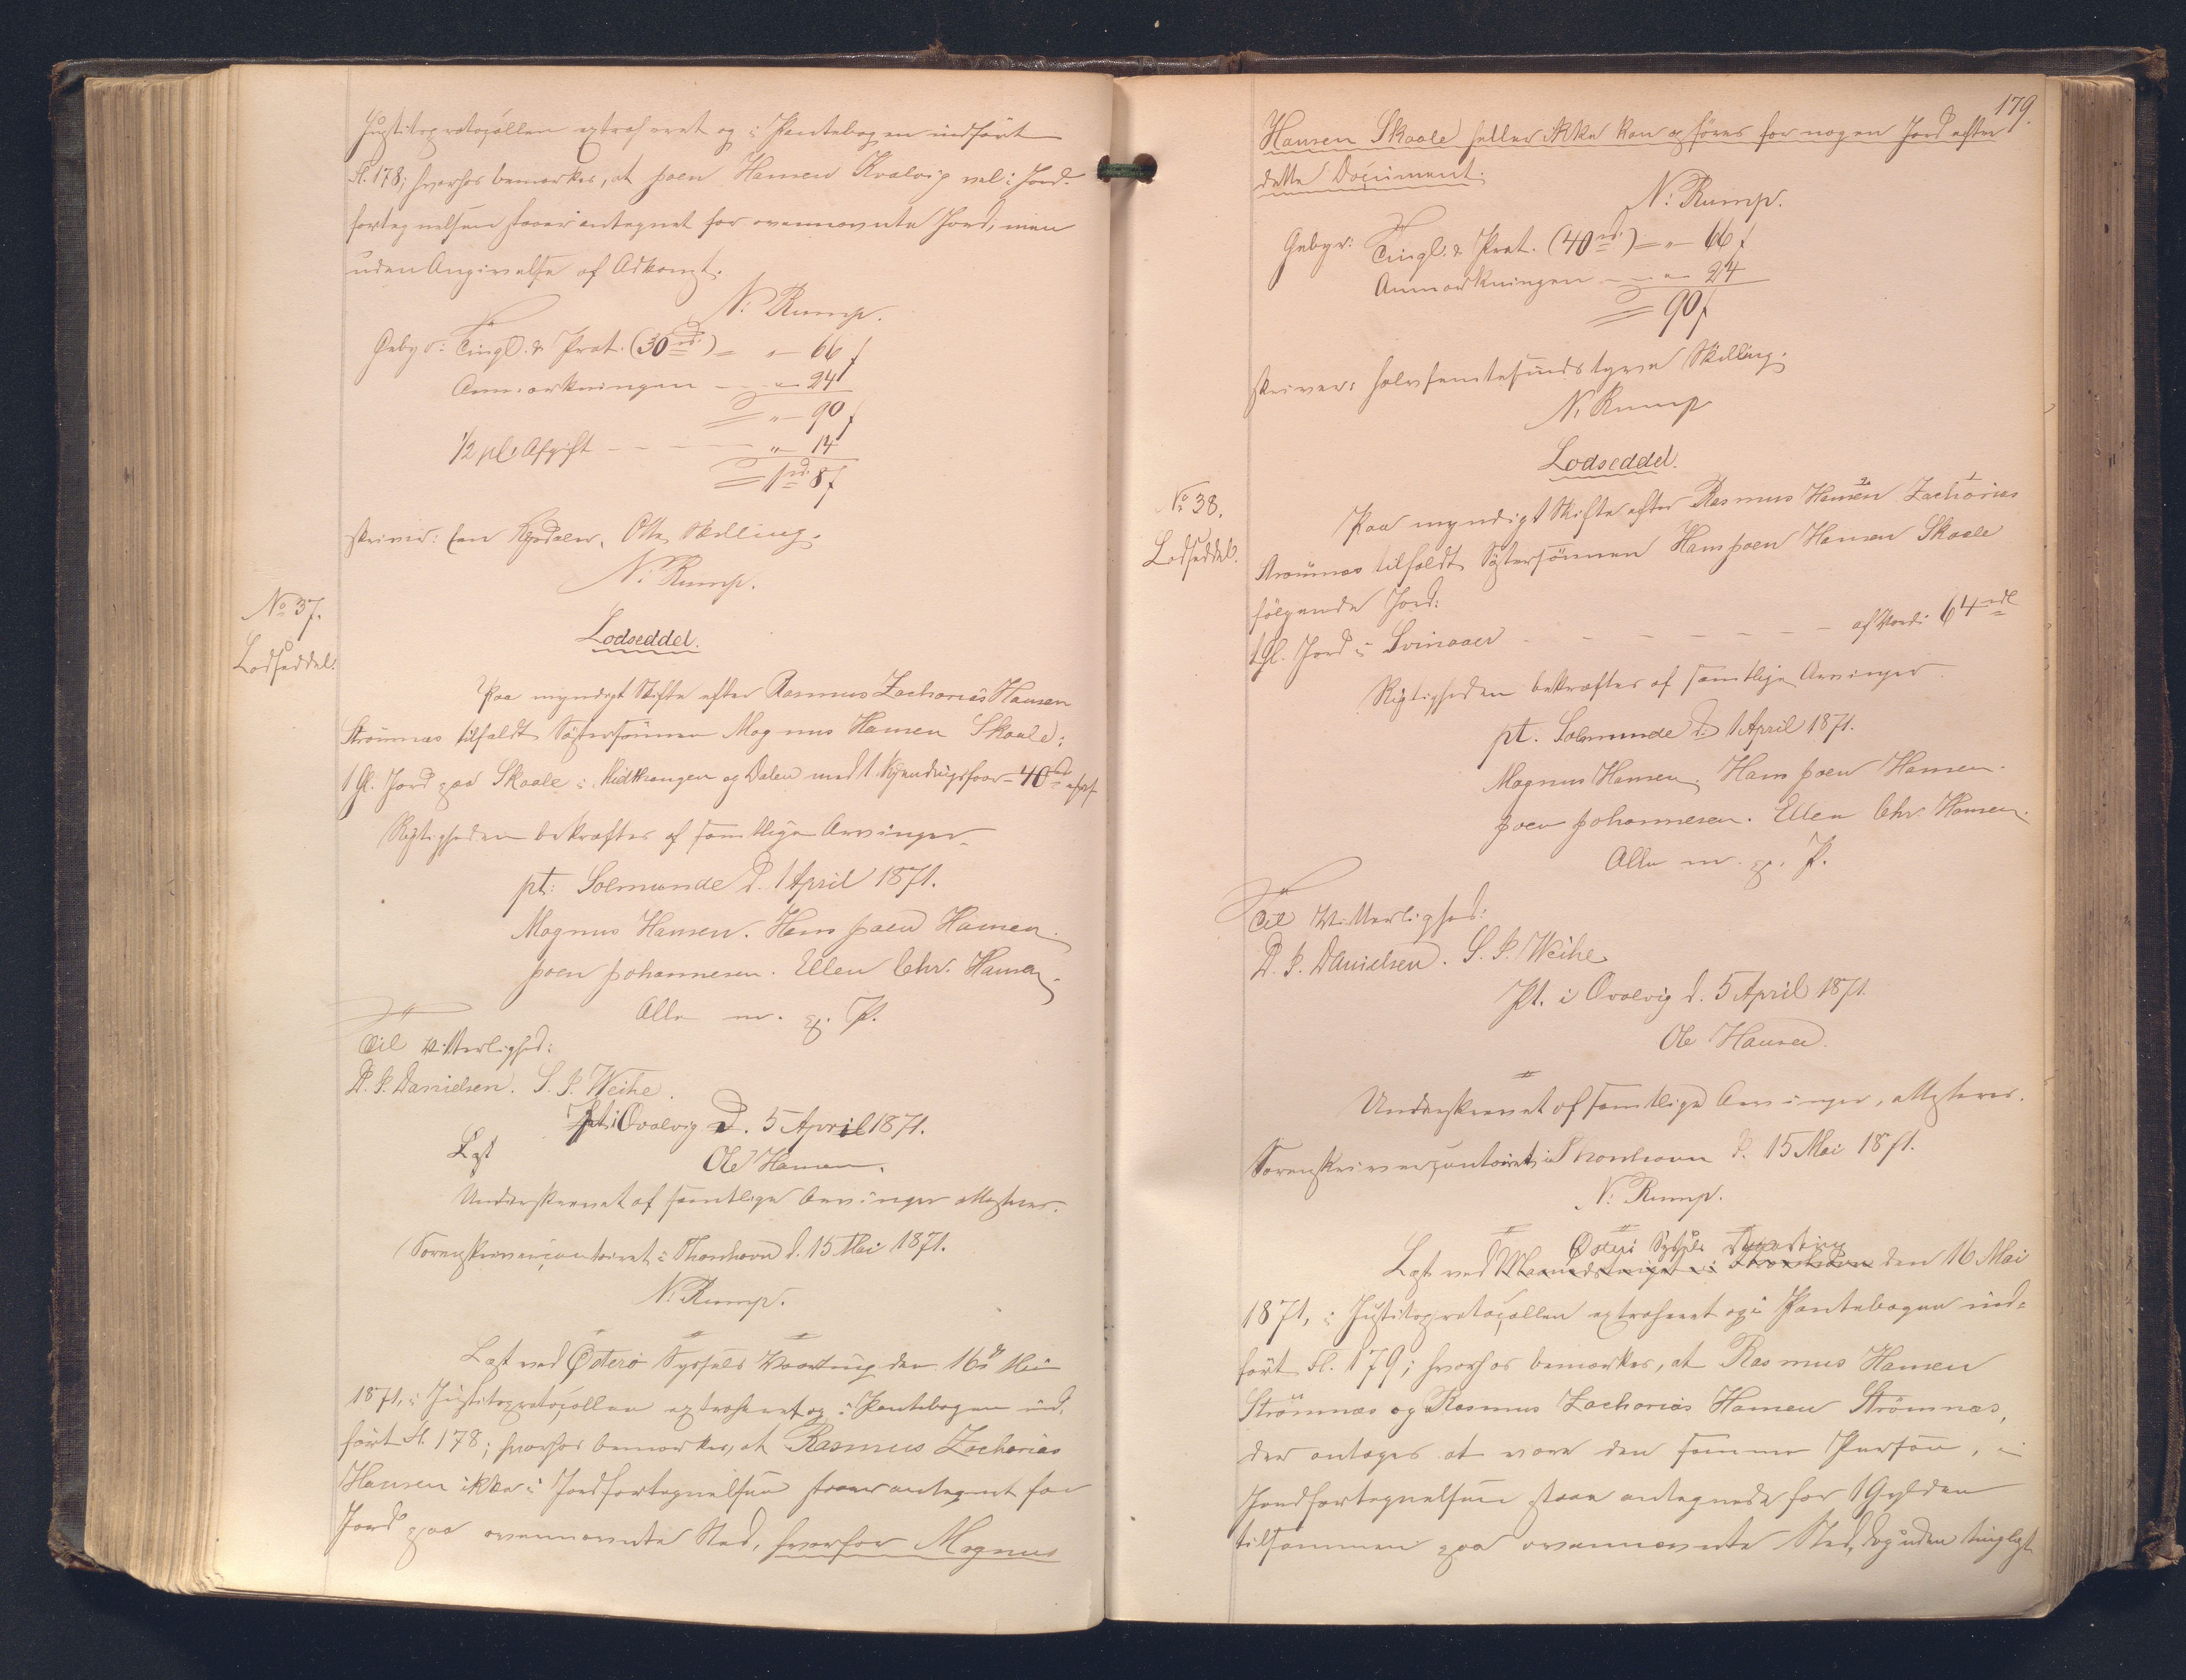 Justitsprotocollen extraheret og i Pantebogen indført
Fl. 178; hvorhos bemærkes, at Joen Hansen Kvalvig vel i Jord-
fortegnelsen staaer antegnet for ovennævnte Jord, men
uden Angivelse af Adkomst.
N. Rump.
Gebyr: Tingl. & Prot. (30 rd.) = " — 66 ſ
Anmærkningen — " — 24
= " — 90 ſ
1/2 pCt Afgift — — — " 14
= 1 rd. 8 ſ
skriver: een Rigsdaler, Otte Skilling.
N. Rump.
No 37.
Lodseddel.
Lodseddel.
Paa myndigt Skifte efter Rasmus Zacharias Hansen
Strømnæs tilfaldt Søstersønnen Magnus Hansen Skaale:
1 Gl. Jord paa Skaale i Midthaugen og Dalen med 1 40 rd
Rigtigheden bekræftes af samtlige Arvinger.
pt. Solmunde d. 1 April 1871.
Magnus Hansen. Hans Joen Hansen.
Joen Johannesen. Ellen Chr. Hansen.
Alle m. p. P.
Til Vitterlighed:
D. J. Danielsen. S. P. Weihe.
Pt. i Qvalvig d. 5 April 1871.
Lqt Ole Hansen.
Underskrevet af samtlige Arvinger attesteres.
Sorenskrivercontoiret i Thorshavn d. 15 Mai 1871.
N. Rump.
Læst ved Østerø Syssels Vaarting den 16de Mai
1871, i Justitsprotocollen extraheret og i Pantebogen ind-
ført Fl. 178; hvorhos bemærkes, at Rasmus Zacharias
Hansen ikke i Jordfortegnelsen staaer antegnet for
Jord paa ovennævnte Sted, hvorfor Magnus
179.
Hansen Skaale heller ikke kan opføres for nogen Jord efter
dette Document.
N. Rump.
Gebyr: Tingl. & Prot. (40 rd.) = " — 66 ſ
Anmærkningen — " — 24
= 90 ſ
skriver: halvfemtesindstyve Skilling.
N. Rump
Lodseddel.
No 38.
Lodseddel.
Paa myndigt Skifte efter Rasmus Hansen Zacharias
Strømnæs tilfaldt Søstersønnen Hans Joen Hansen Skaale
følgende Jord:
1 Gl. Jord i Svinaaer — — — — — — af Værdi 64 rdl
Rigtigheden bekræftes af samtlige Arvinger.
pt. Solmunde d. 1 April 1871.
Magnus Hansen. Hans Joen Hansen.
Joen Johannesen. Ellen Chr. Hansen.
Alle m. p. P.
Til Vitterlighed:
D. J. Danielsen. S. P. Weihe
Pt. i Qvalvig d. 5 April 1871.
Ole Hansen.
Underskrevet af samtlige Arvinger, attesteres.
Sorenskrivercontoiret i Thorshavn d. 15 Mai 1871.
N. Rump.
Østerø Syssels Vaarting
Læst ved Maanedstinget i Thorshavn den 16 Mai
1871, i Justitsprotocollen extraheret og i Pantebogen ind-
ført Fl. 179; hvorhos bemærkes, at Rasmus Hansen
Strømnæs og Rasmus Zacharias Hansen Strømnæs,
der antages at være den samme Person, i
Jordfortegnelsen staae antegnede for 1 Gylden
tilsammen paa ovennævnte Sted, dog uden tinglyst